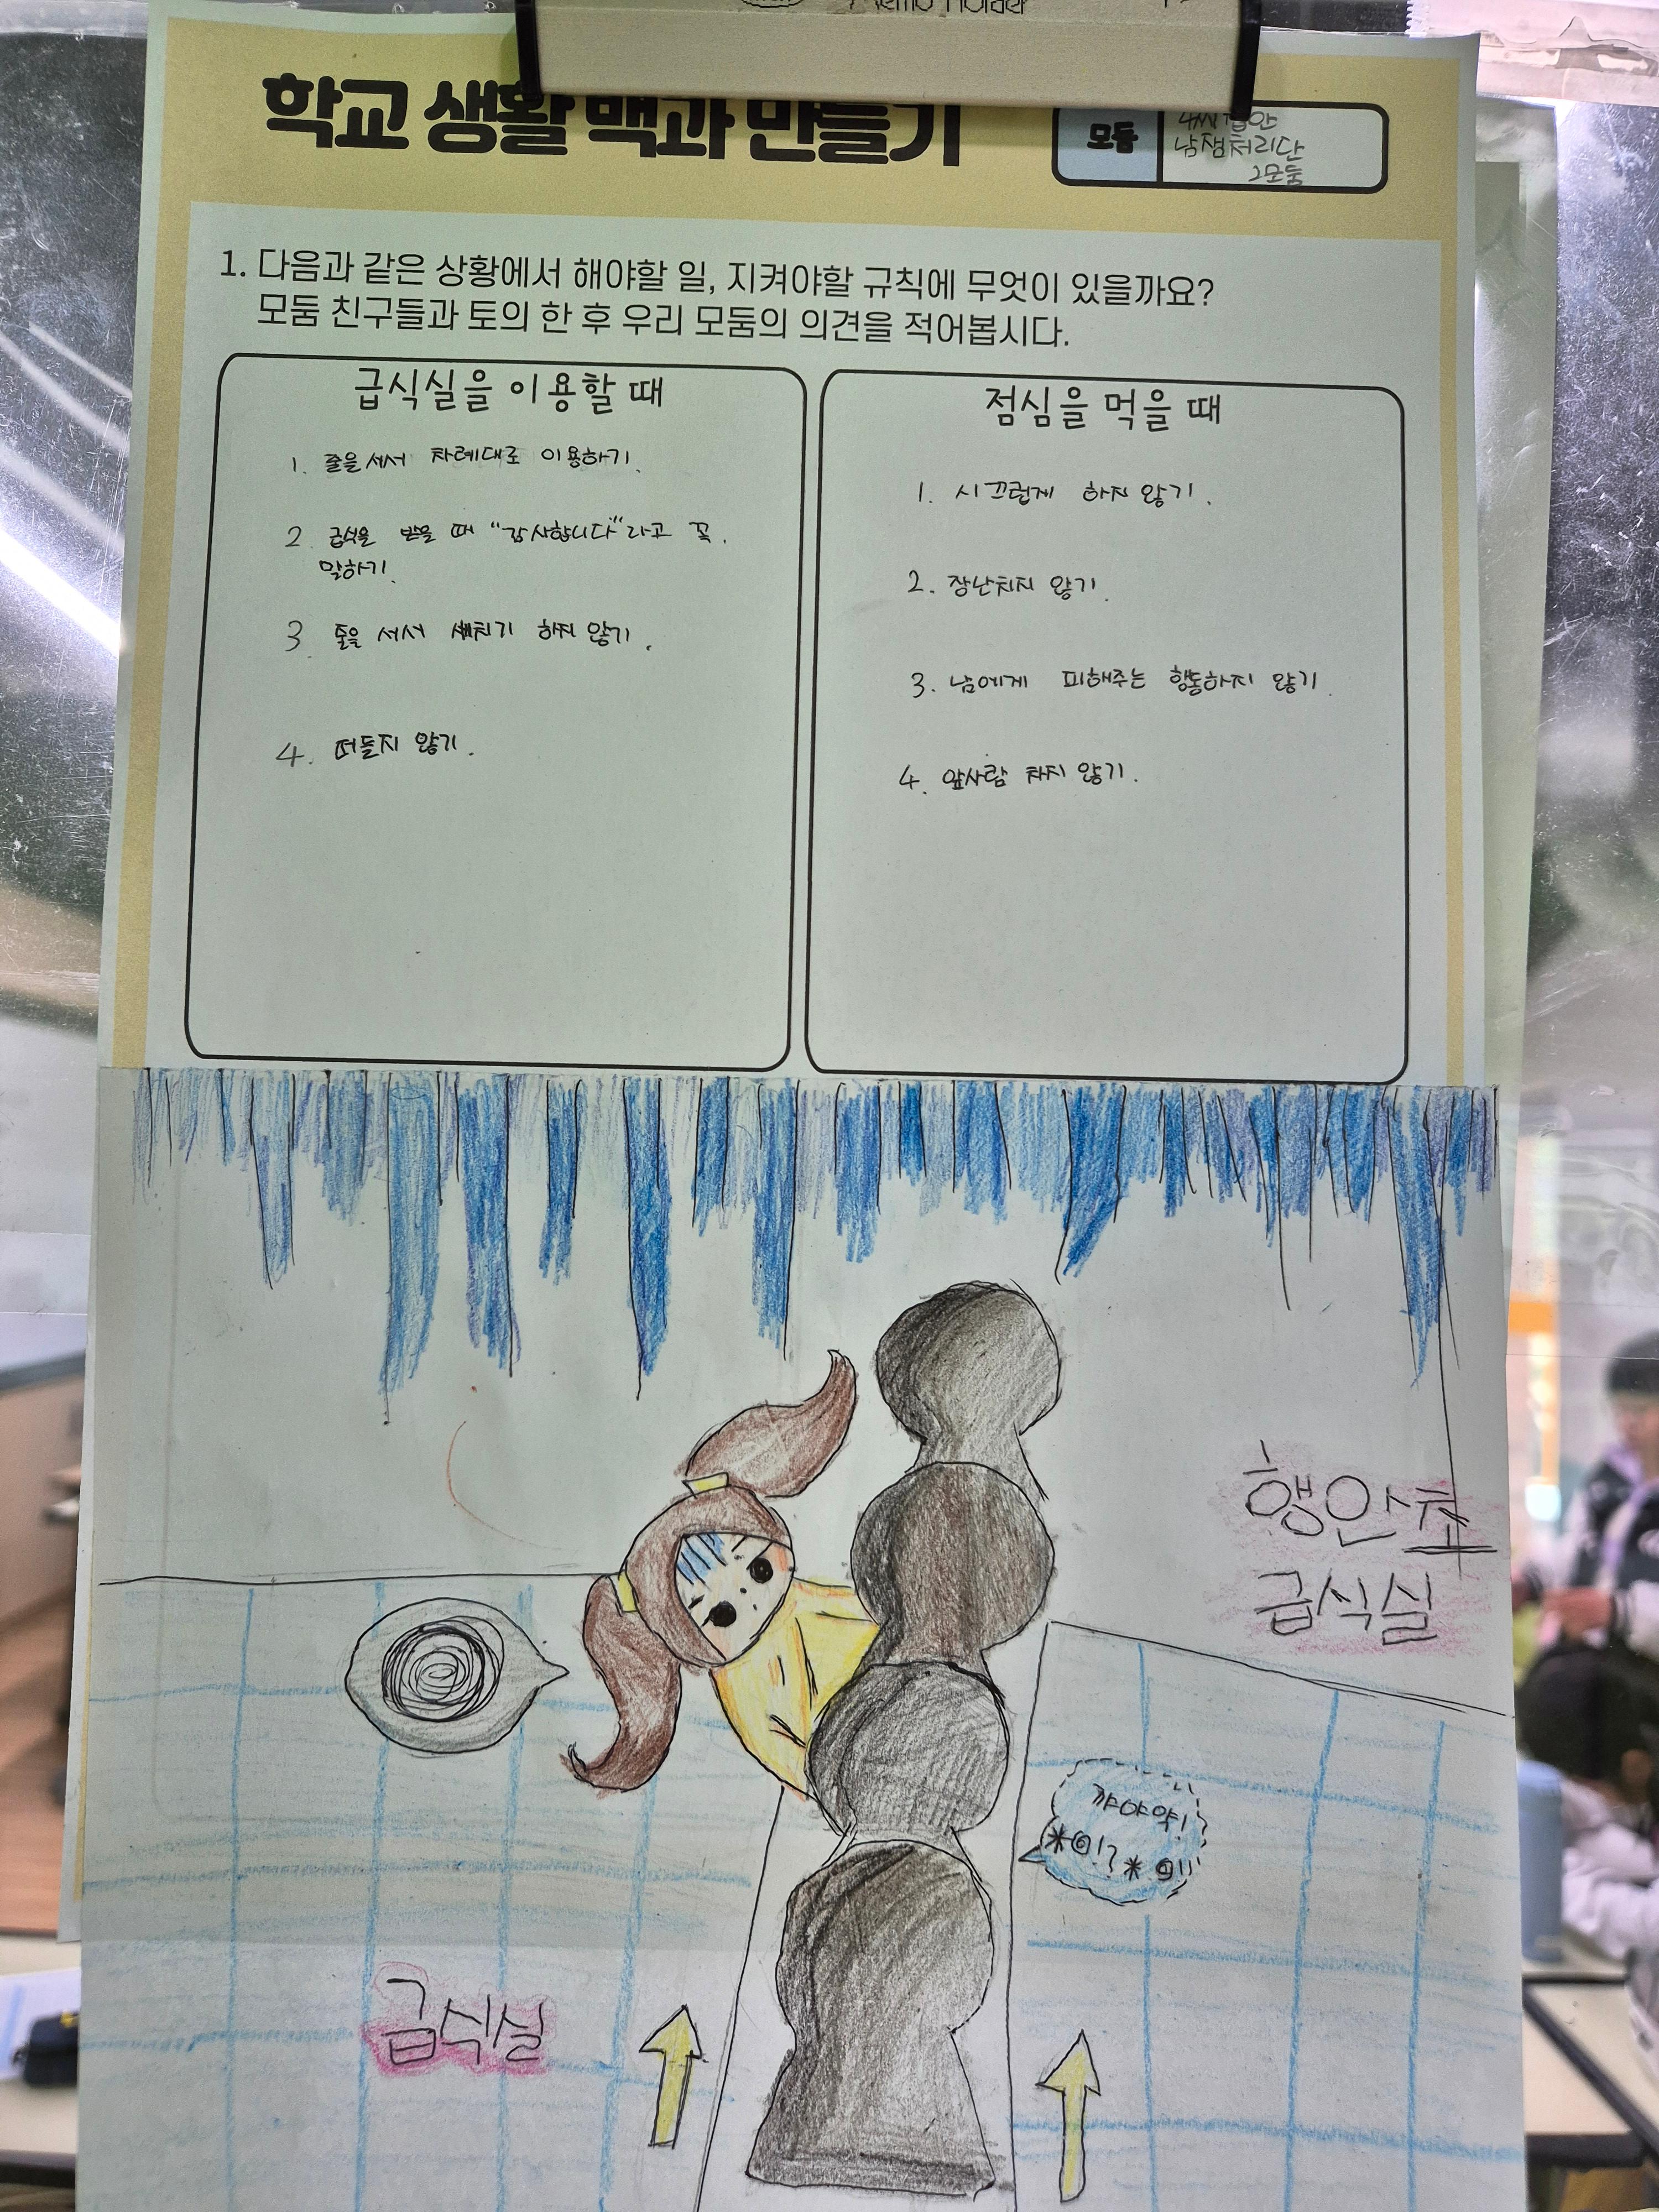 Memo Holder
학교 생활 백과 만들기
모둠
남잼처리단
2모둠
1. 다음과 같은 상황에서 해야할 일, 지켜야할 규칙에 무엇이 있을까요?
모둠 친구들과 토의 한 후 우리 모둠의 의견을 적어봅시다.
급식실을 이용할 때
1. 줄을 서서 차례대로 이용하기.
2. 급식을 받을 때 "감사합니다"라고 꼭.
말하기.
3. 줄을 서서 새치기 하지 않기.
4. 떠들지 않기.
점심을 먹을 때
1. 시끄럽게 하지 않기.
2. 장난치지 않기.
3. 남에게 피해주는 행동하지 않기.
4. 앞사람 차지 않기.
행안초
급식실
꺄야악!
*@!? *@!!
급식실